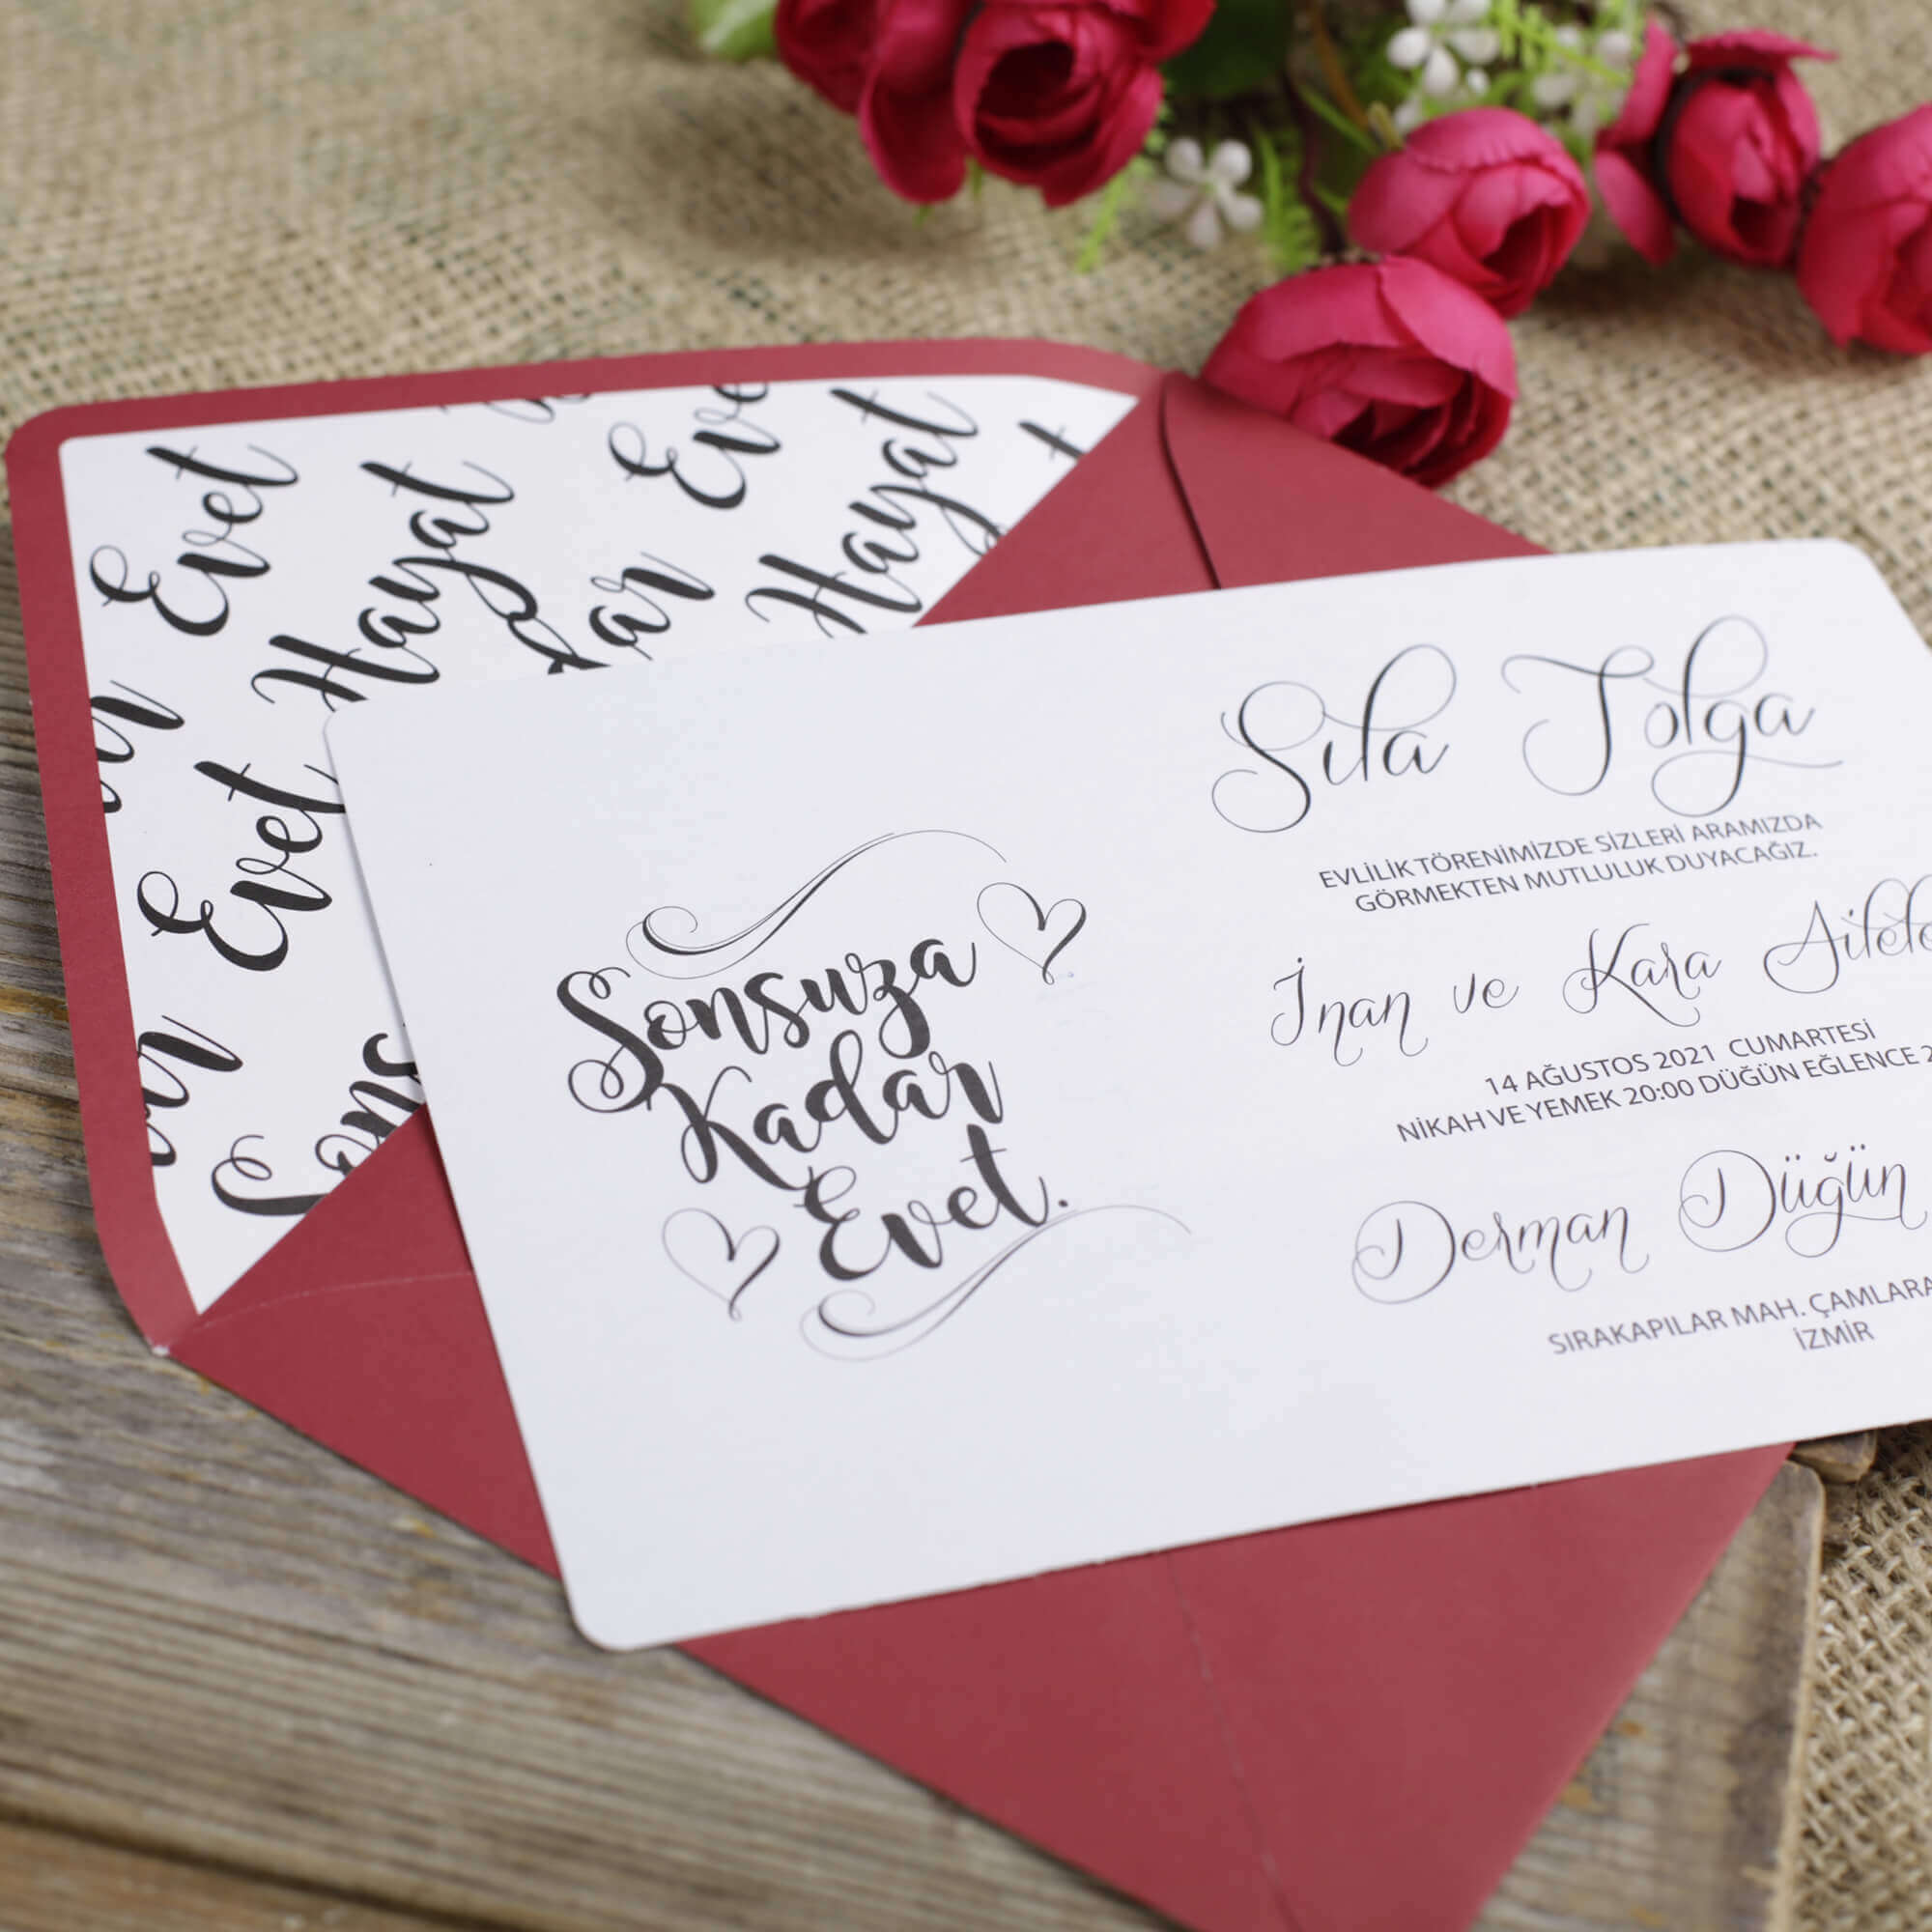 Evet
Hayat
Eve
Hayat
Evet
Sonsuza
Kadar
Evet.
Sıla Tolga
EVLİLİK TÖRENİMİZDE SİZLERİ ARAMIZDA
GÖRMEKTEN MUTLULUK DUYACAĞIZ.
İnan ve Kara
14 AĞUSTOS 2021 CUMARTESİ
NİKAH VE YEMEK 20:00 DÜĞÜN EĞLENCE
Derman Düğün
SIRAKAPILAR MAH.
İZMİR